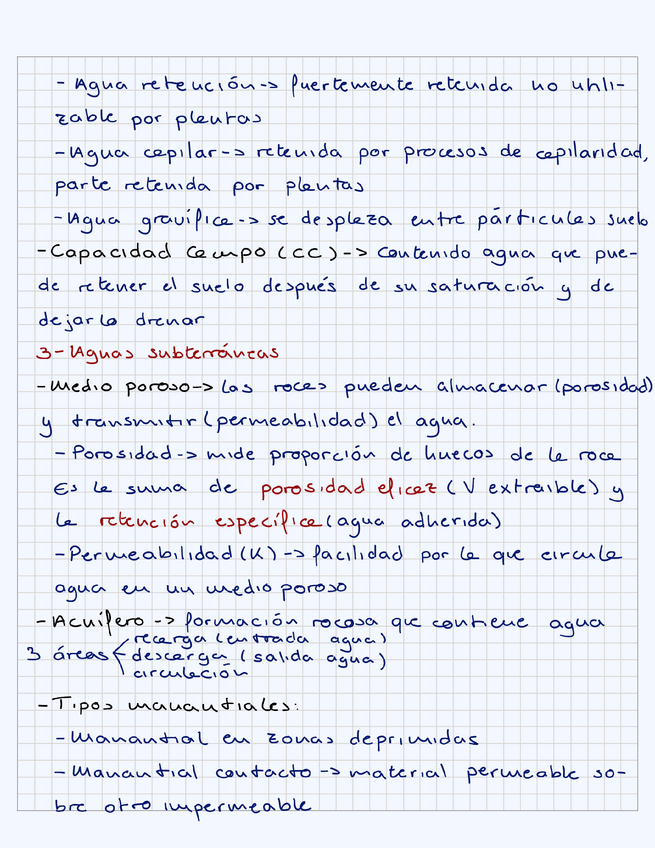 - Agua retención -> fuertemente retenida no utili-
zable por plantas
- Agua capilar -> retenida por procesos de capilaridad,
parte retenida por plantas
- Agua gravífica -> se desplaza entre párticulas suelo
- Capacidad Campo (CC) -> contenido agua que pue-
de retener el suelo después de su saturación y de
dejarlo drenar
3- Aguas subterráneas
- Medio poroso -> las rocas pueden almacenar (porosidad)
y transmitir (permeabilidad) el agua.
- Porosidad -> mide proporción de huecos de la roca
Es la suma de porosidad eficaz (V extraíble) y
la retención específica (agua adherida)
- Permeabilidad (K) -> facilidad por la que circula
agua en un medio poroso
- Acuífero -> formación rocosa que contiene agua
recarga (entrada agua)
3 áreas descarga (salida agua)
circulación
- Tipos manantiales:
- Manantial en zonas deprimidas
- Manantial contacto -> material permeable so-
bre otro impermeable